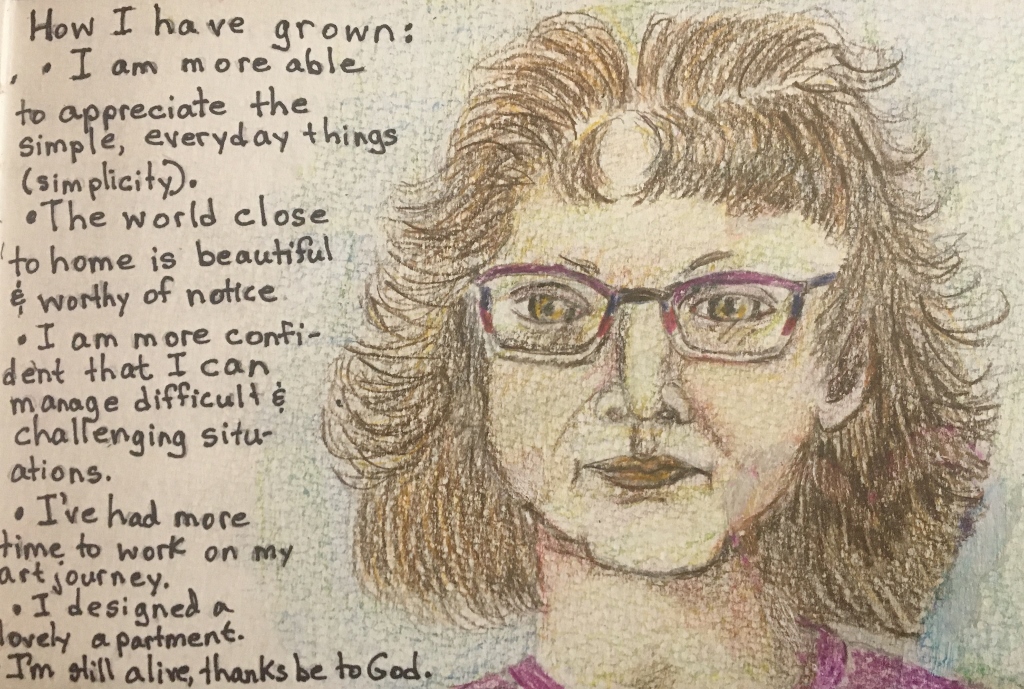 How I have grown:
• I am more able
to appreciate the
simple, everyday things
(simplicity).
• The world close
to home is beautiful
& worthy of notice
• I am more confi-
dent that I can
manage difficult &
challenging situ-
ations.
• I've had more
time to work on my
art journey.
• I designed a
lovely apartment.
I'm still alive, thanks be to God.